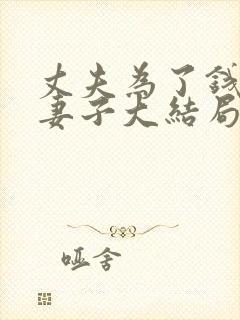 丈夫為了錢
妻子大結局
哑舍